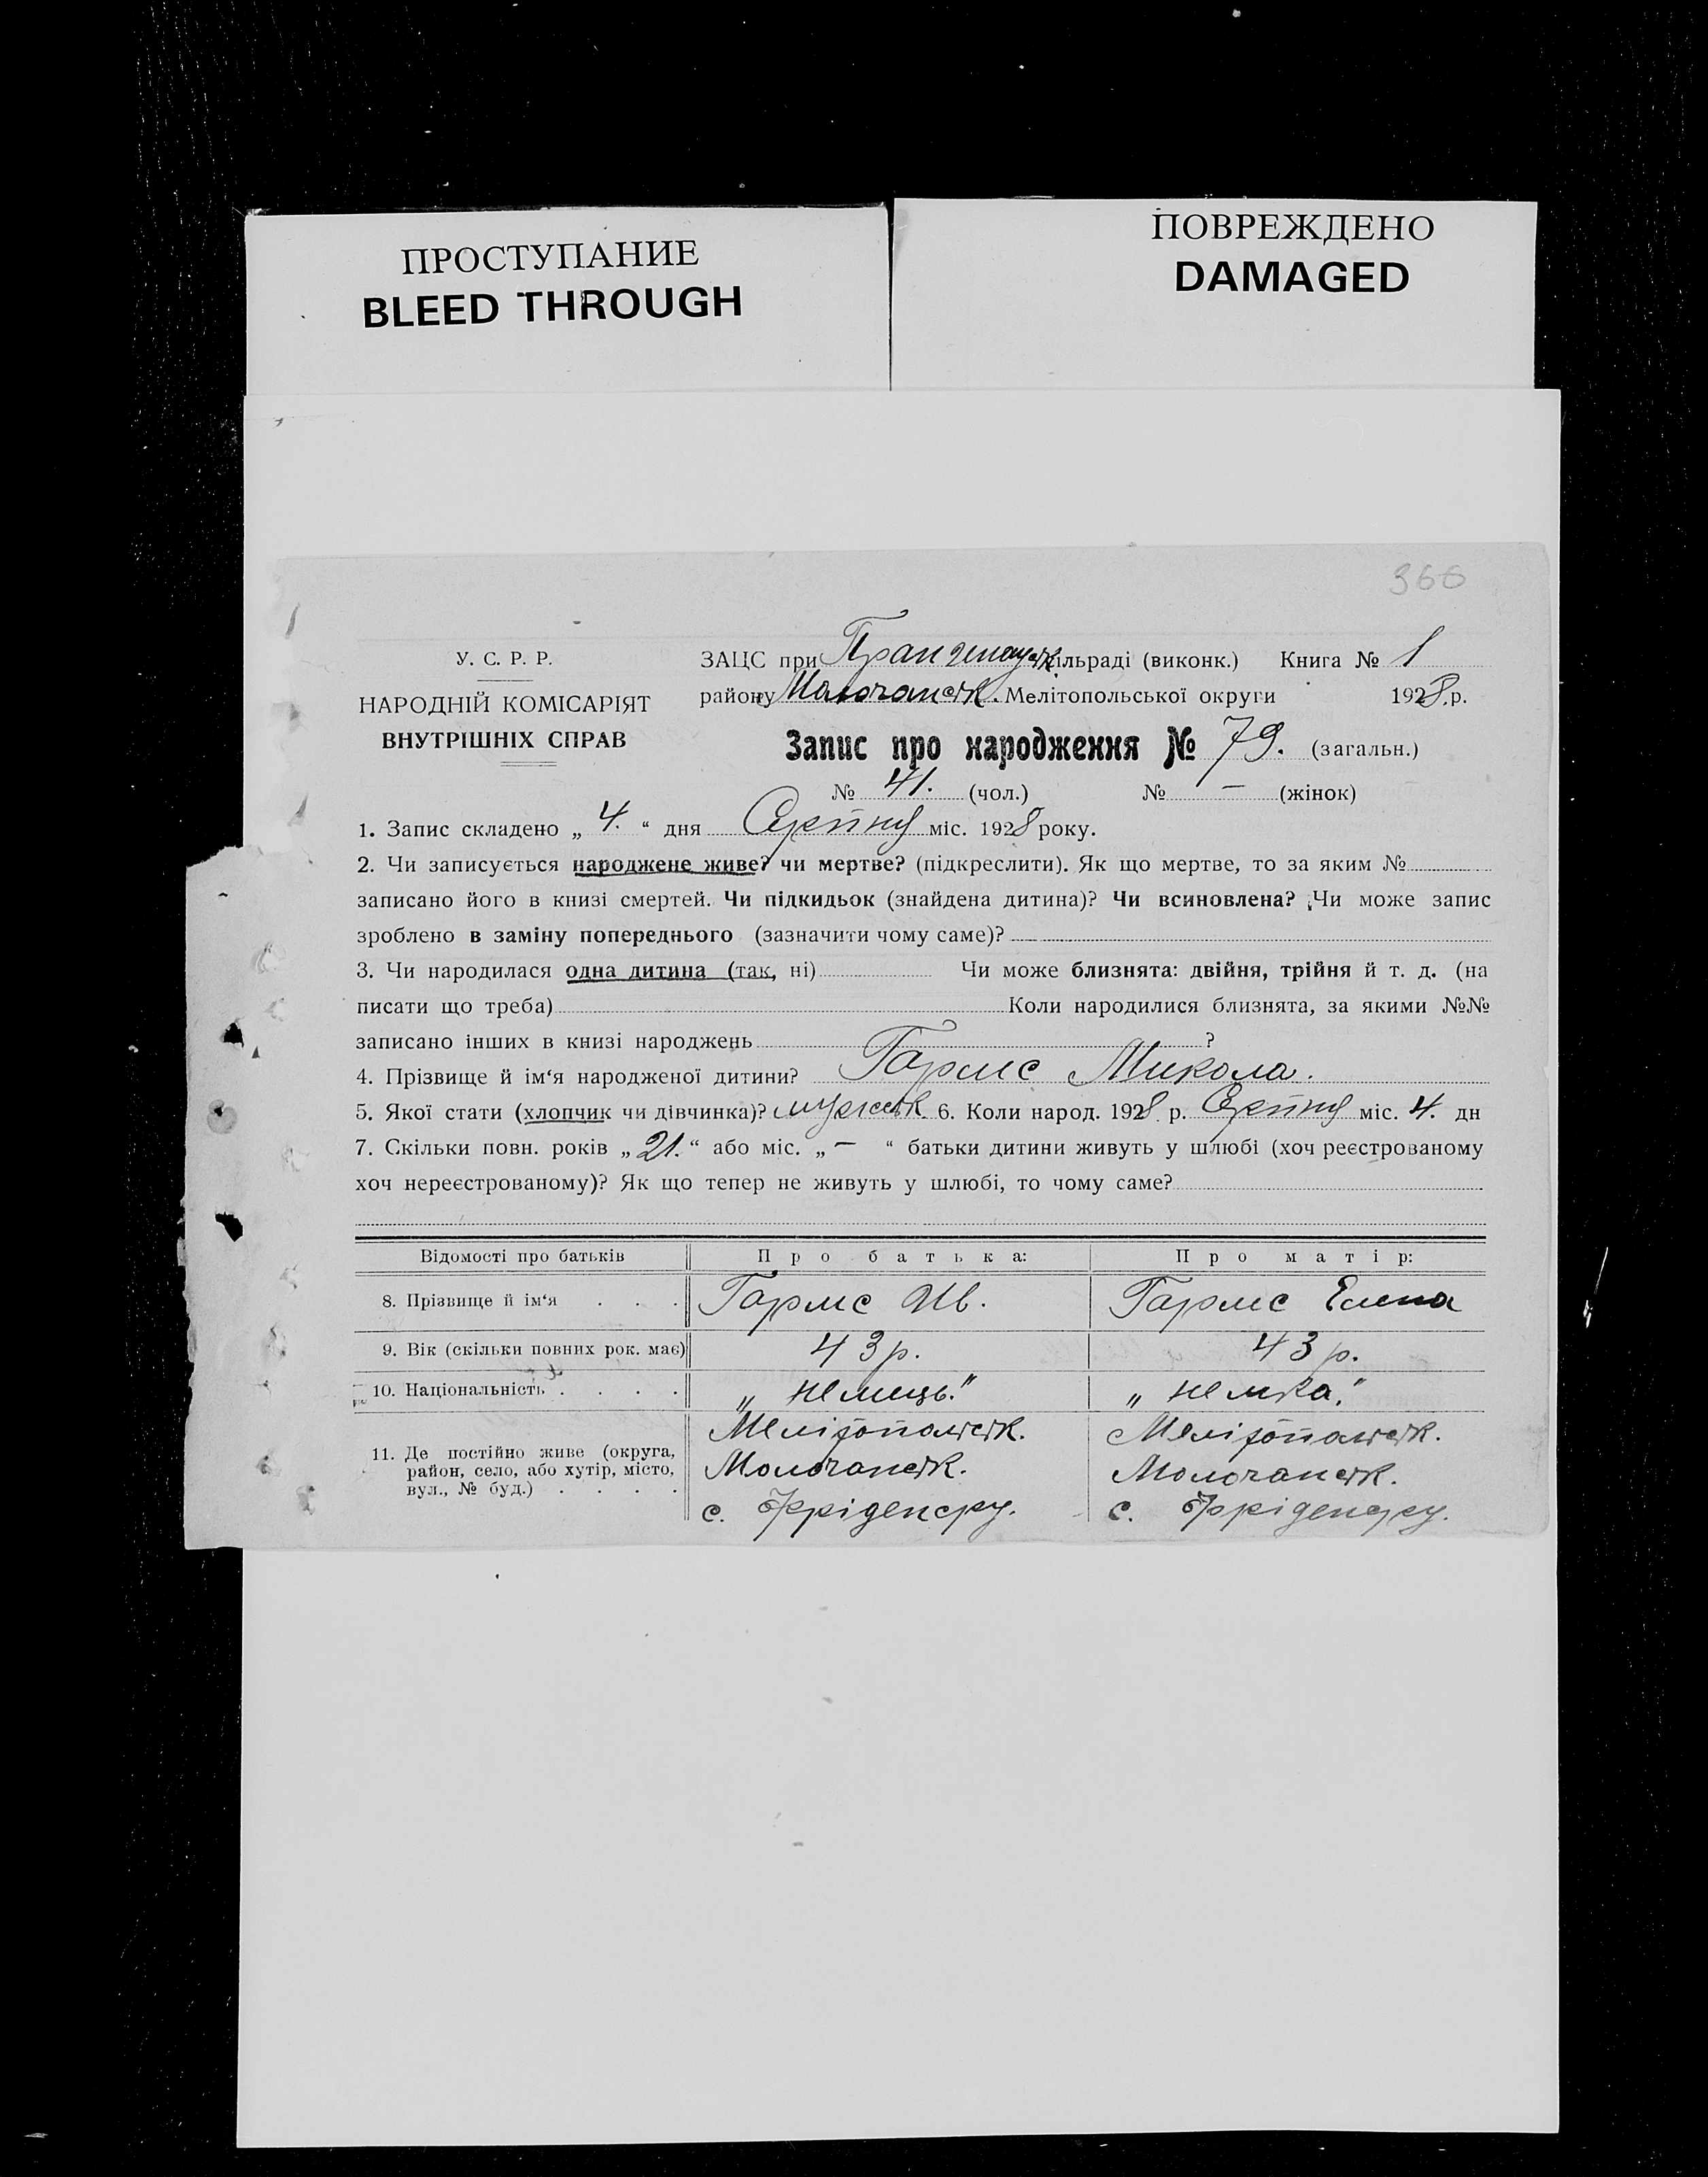 ПРОСТУПАНИЕ
BLEED THROUGH
ПОВРЕЖДЕНО
DAMAGED
366
У. С. Р. Р.
НАРОДНІЙ КОМІСАРІЯТ
ВНУТРІШНІХ СПРАВ
ЗАЦС при Прангенауськ. сільраді (виконк.) Книга № 1
району Молочанськ. Мелітопольської округи 1928 р.
Запис про народження № 79. (загальн.)
№ 41. (чол.) № — (жінок)
1. Запис складено „ 4. “ дня Серпня міс. 1928 року.
2. Чи записується народжене живе? чи мертве? (підкреслити). Як що мертве, то за яким №
записано його в книзі смертей. Чи підкидьок (знайдена дитина)? Чи всиновлена? Чи може запис
зроблено в заміну попереднього (зазначити чому саме)?
3. Чи народилася одна дитина (так, ні) Чи може близнята: двійня, трійня й т. д. (на
писати що треба) Коли народилися близнята, за якими №№
записано інших в книзі народжень ?
4. Прізвище й ім‘я народженої дитини? Гармс Микола.
5. Якої стати (хлопчик чи дівчинка)? мужеськ. 6. Коли народ. 1928 р. Серпня міс. 4. дн
7. Скільки повн. років „ 21. “ або міс. „ — “ батьки дитини живуть у шлюбі (хоч реєстрованому
хоч нереєстрованому)? Як що тепер не живуть у шлюбі, то чому саме?
Відомості про батьків Про батька: Про матір:
8. Прізвище й ім‘я . . . Гармс Ив. Гармс Елена
9. Вік (скільки повних рок. має) 43 р. 43 р.
10. Національність . . . . „ немець." „ немка."
11. Де постійно живе (округа, район, село, або хутір, місто, вул., № буд.) . . . .
Мелітопольськ. Мелітопольськ.
Молочанськ. Молочанськ.
с. Фріденсру. с. Фріденсру.